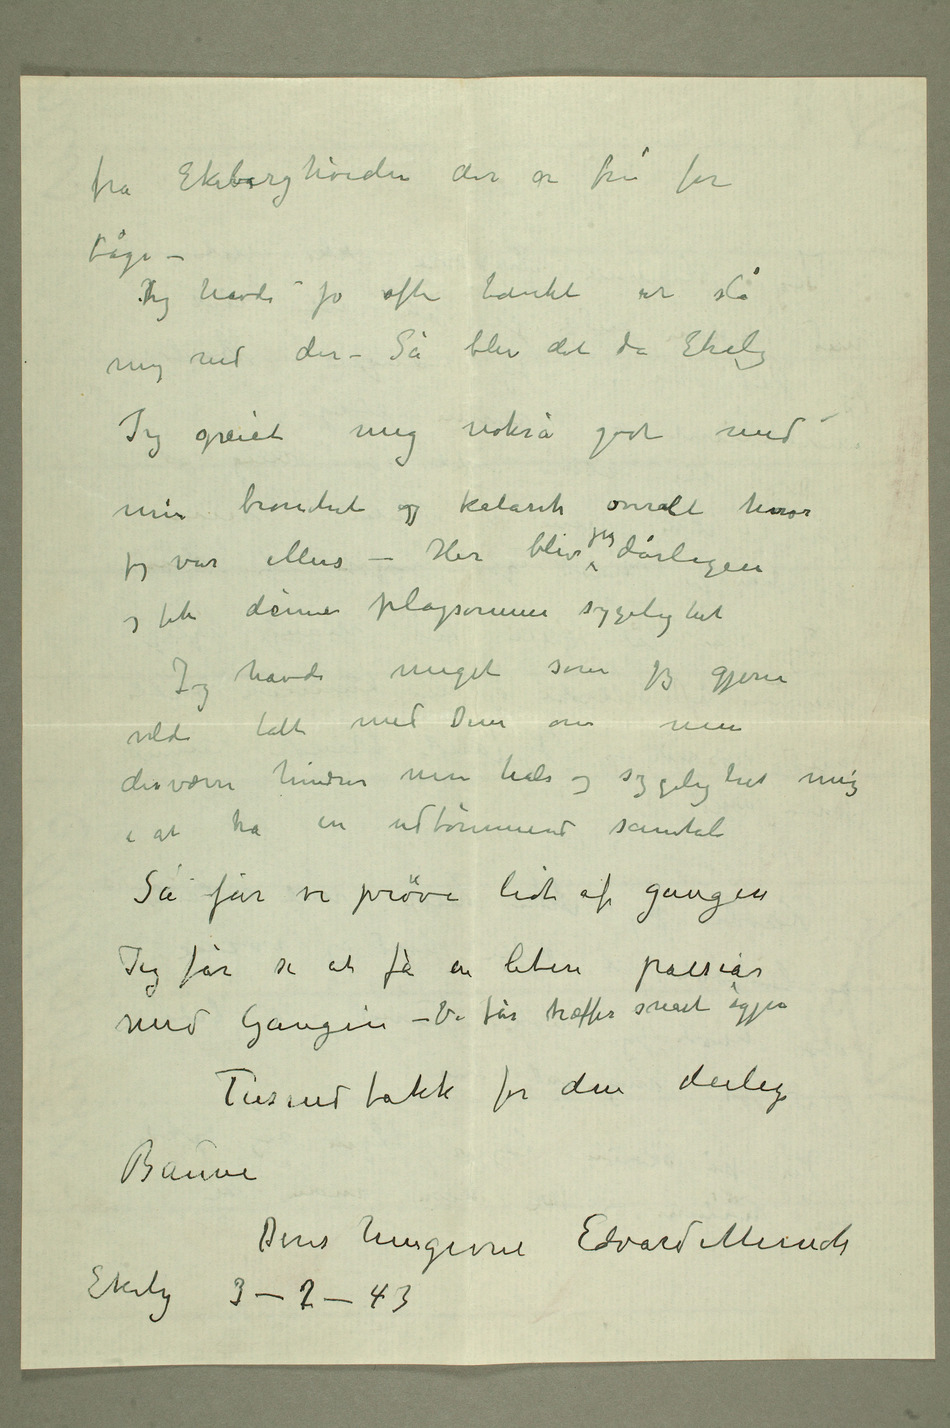 fra Ekeberghøiden der er fri for
tåge –
Jeg havde jo ofte tænkt at slå
mig ned der – Så blev det da Ekely
Jeg greiet mig nokså godt med
min bronchit og katarrh overalt hvor
jeg var ellers – Her blev jeg dårligere
og fik denne plagsomme sygelighet
Jeg havde meget som jeg gjerne
vilde talt med Dem om men
desværre hindrer min hals og sygelighet mig
i at ha en udtømmende samtale
Så får vi prøve lidt af gangen
Jeg får se at få en liten passiar
med Gangen – Vi får træffes snart igjen
Tusind takk for den deilige
Baune
Deres hengivne Edvard Munch
Ekely 3 – 2 – 43